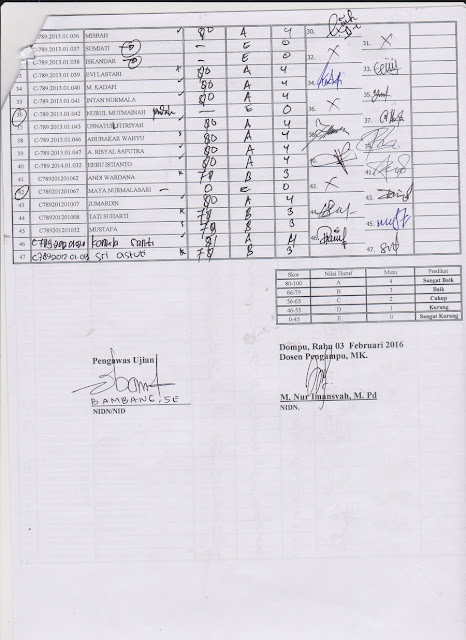 C-789.2013.01.036 MISBAH 80 A 4 30.
C-789.2013.01.037 SUMIATI – E 0 31. X
C-789.2013.01.038 ISKANDAR – E 0 32. X
33 C-789.2013.01.039 EVI LASTARI 80 A 4 33.
34 C-789.2013.01.040 M. KADAFI 80 A 4 34.
35 C-789.2013.01.041 INTAN NURMALA 80 A 4 35.
36 C-789.2013.01.042 NURUL MUTMAINAH – E 0 36. X
37 C-789.2013.01.043 USNATUL FITRIYAH 80 A 4 37.
38 C-789.2013.01.046 ABUBAKAR WAHYU 80 A 4
39 C-789.2013.01.047 A. RISYAL SAPUTRA 80 A 4
40 C-789.2014.01.032 HERU ISTIANTO 80 A 4 40.
41 C789201201062 ANDI WARDANA 78 B 3 41.
42 C789201201067 MAYA NURMALASARI – 0 E 0 42. X
43 C789201201007 JUMARDIN 80 A 4 43.
44 C789201201008 TATI SUHARTI 78 B 3 44.
45 C789201201032 MUSTAFA 78 B 3 45.
46 Santi 81 A 4 46.
47 Sri astuti 78 B 3 47.
Skor Nilai Huruf Mutu Predikat
80-100 A 4 Sangat Baik
66-79 B 3 Baik
56-65 C 2 Cukup
46-55 D 1 Kurang
0-45 E 0 Sangat Kurang
Dompu, Rabu 03 Februari 2016
Pengawas Ujian
Dosen Pengampu, MK.
BAMBANG, SE
NIDN/NID
M. Nur Imansyah, M. Pd
NIDN.